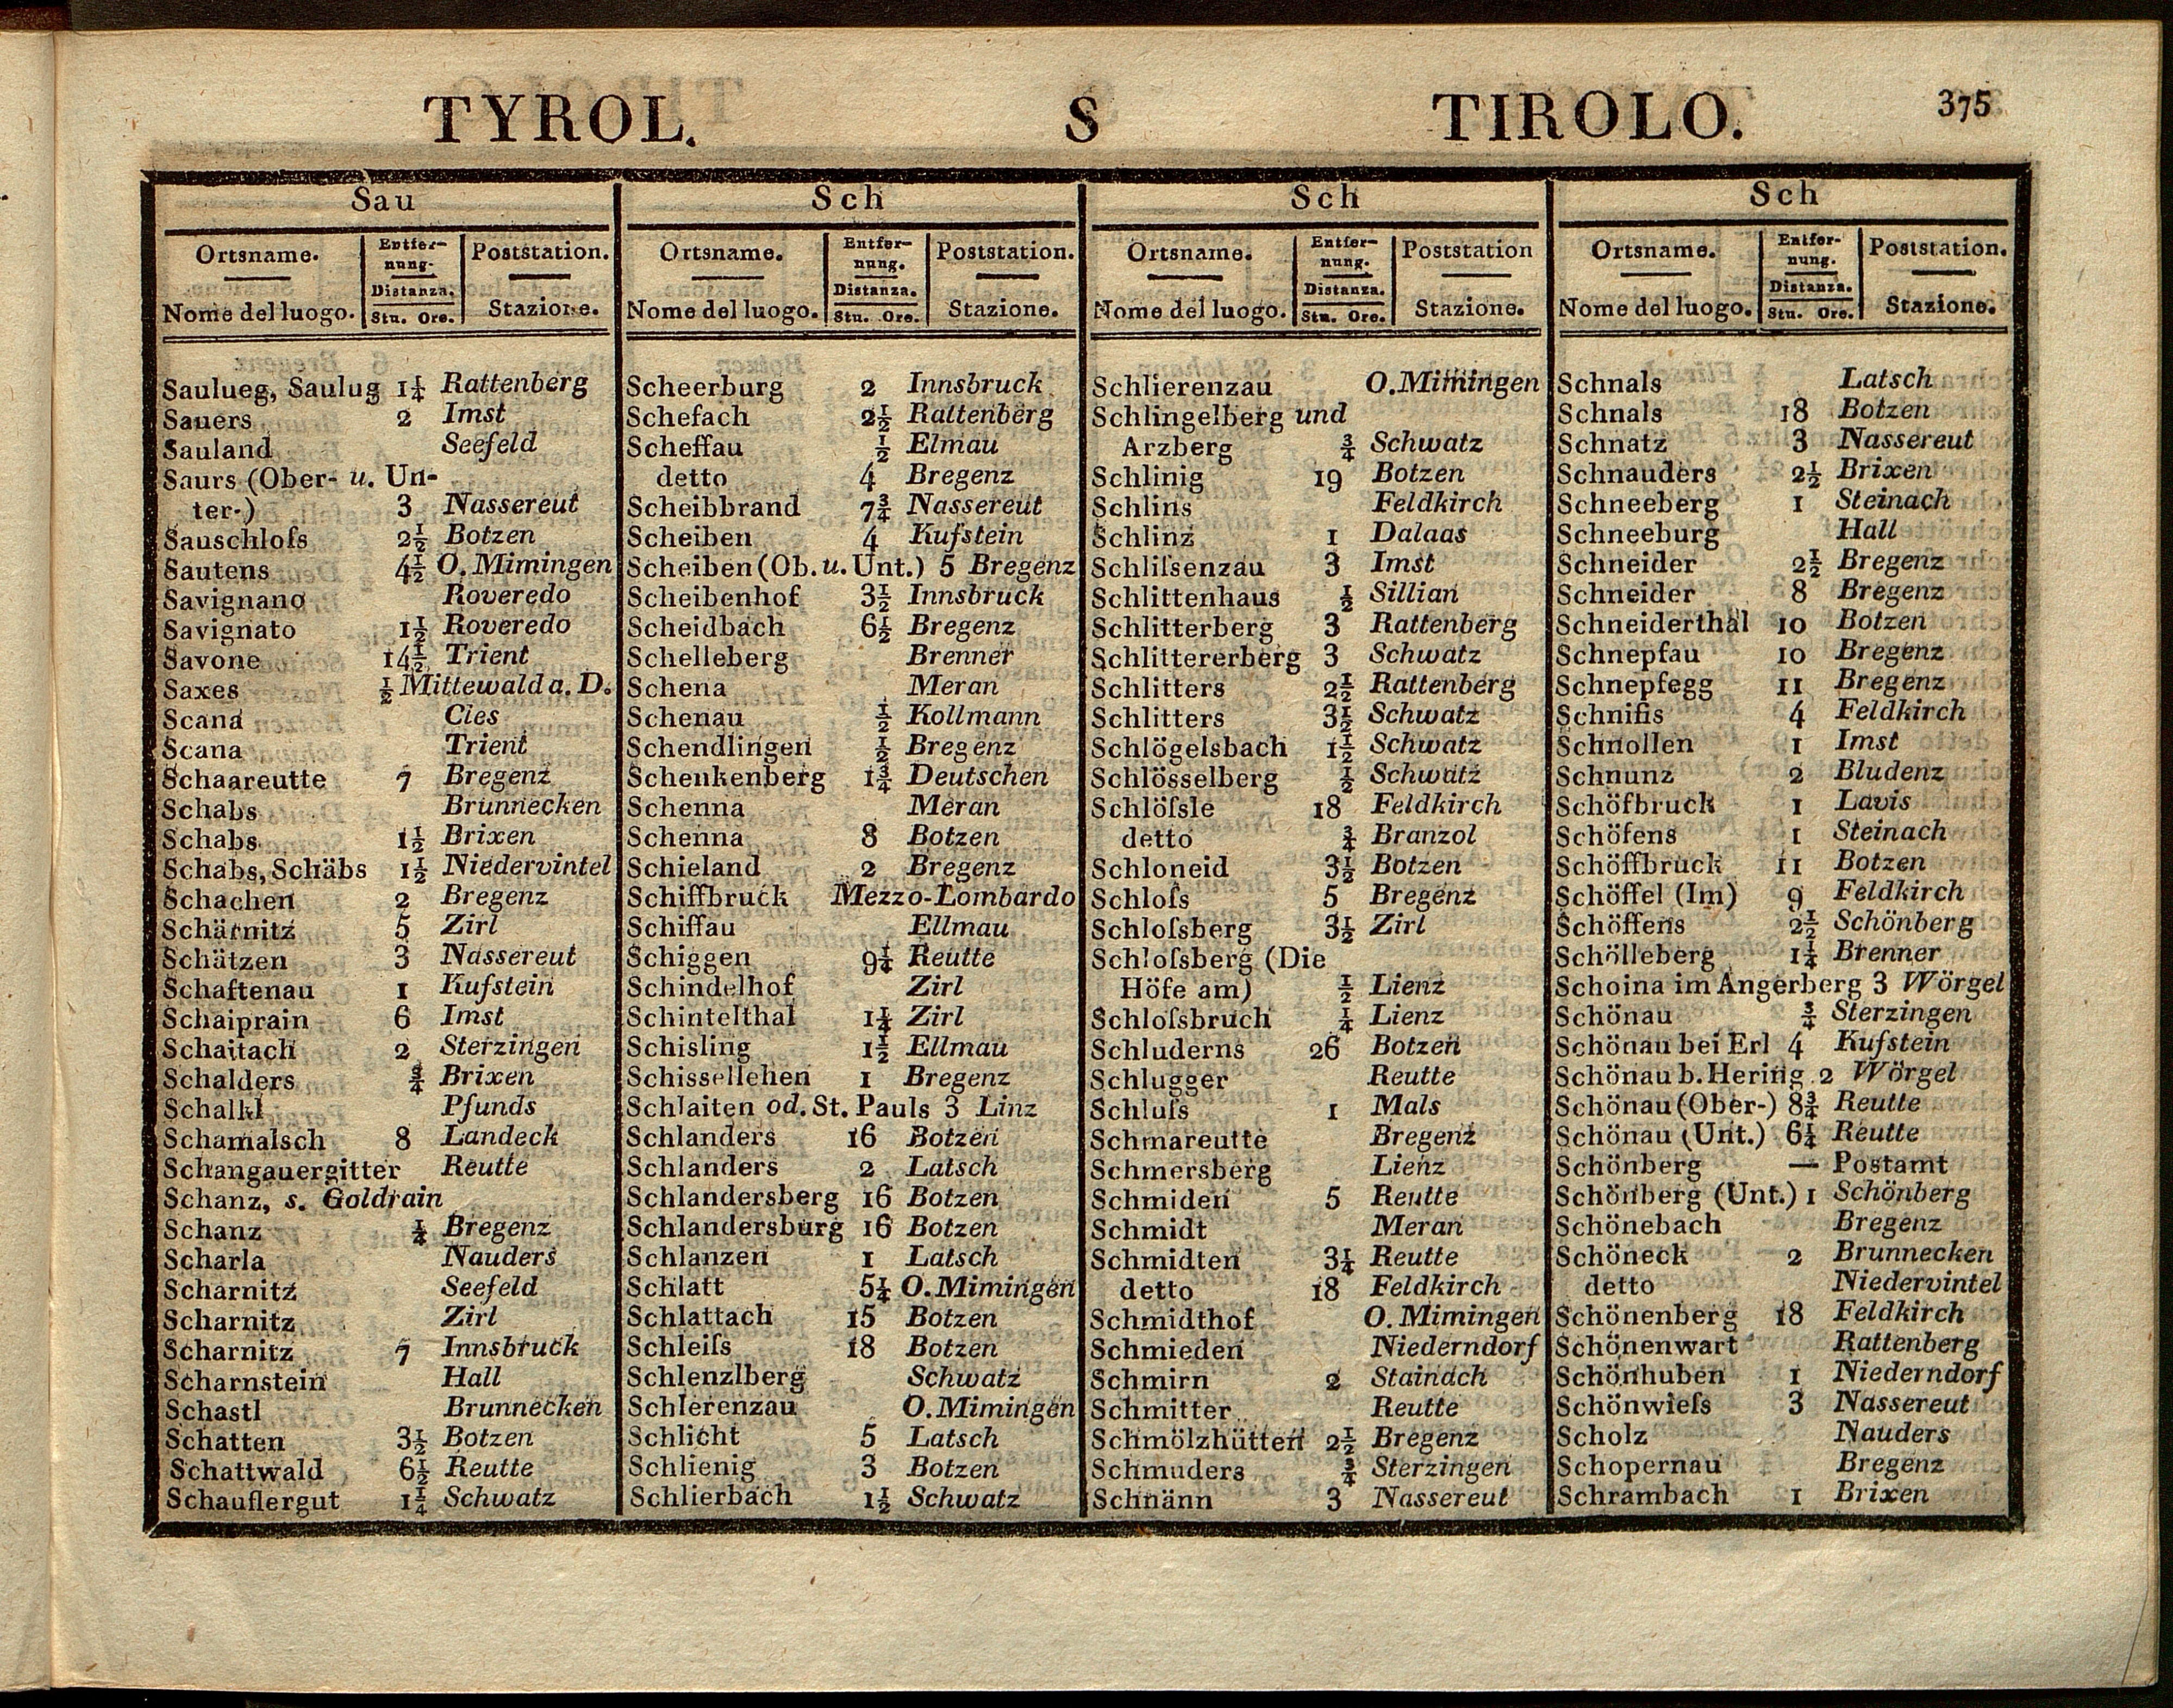 TYROL. S TIROLO. 375
Sau
Ortsname. Entfernung. Poststation.
Nome del luogo. Distanza. Stu. Ore. Stazione.
Saulueg, Saulug 1¼ Rattenberg
Sauers 2 Imst
Sauland Seefeld
Saurs (Ober- u. Un-
ter-) 3 Nassereut
Sauschloſs 2½ Botzen
Sautens 4½ O. Mimingen
Savignano Roveredo
Savignato 1½ Roveredo
Savone 14½ Trient
Saxes ½ Mittewald a. D.
Scana Cles
Scana Trient
Schaareutte 7 Bregenz
Schabs Brunnecken
Schabs 1½ Brixen
Schabs, Schäbs 1½ Niedervintel
Schachen 2 Bregenz
Schärnitz 5 Zirl
Schätzen 3 Nassereut
Schaftenau 1 Kufstein
Schaiprain 6 Imst
Schaitach 2 Sterzingen
Schalders ¾ Brixen
Schalkl Pfunds
Schamalsch 8 Landeck
Schangauergitter Reutte
Schanz, s. Goldrain
Schanz ¼ Bregenz
Scharla Nauders
Scharnitz Seefeld
Scharnitz Zirl
Scharnitz 7 Innsbruck
Scharnstein Hall
Schastl Brunnecken
Schatten 3½ Botzen
Schattwald 6½ Reutte
Schauflergut 1¼ Schwatz
Sch
Ortsname. Entfernung. Poststation.
Nome del luogo. Distanza. Stu. Ore. Stazione.
Scheerburg 2 Innsbruck
Schefach 2½ Rattenberg
Scheffau ½ Elmau
detto 4 Bregenz
Scheibbrand 7¾ Nassereut
Scheiben 4 Kufstein
Scheiben (Ob. u. Unt.) 5 Bregenz
Scheibenhof 3½ Innsbruck
Scheidbach 6½ Bregenz
Schelleberg Brenner
Schena Meran
Schenau ½ Kollmann
Schendlingen ½ Bregenz
Schenkenberg 1¾ Deutschen
Schenna Meran
Schenna 8 Botzen
Schieland 2 Bregenz
Schiffbruck Mezzo-Lombardo
Schiffau Ellmau
Schiggen 9¼ Reutte
Schindelhof Zirl
Schintelthal 1¼ Zirl
Schisling 1½ Ellmau
Schissellehen 1 Bregenz
Schlaiten od. St. Pauls 3 Linz
Schlanders 16 Botzen
Schlanders 2 Latsch
Schlandersberg 16 Botzen
Schlandersburg 16 Botzen
Schlanzen 1 Latsch
Schlatt 5¼ O. Mimingen
Schlattach 15 Botzen
Schleiſs 18 Botzen
Schlenzlberg Schwatz
Schlerenzau O. Mimingen
Schlicht 5 Latsch
Schlienig 3 Botzen
Schlierbach 1½ Schwatz
Sch
Ortsname. Entfernung. Poststation
Nome del luogo. Distanza. Stu. Ore. Stazione.
Schlierenzau O. Mimingen
Schlingelberg und
Arzberg ¾ Schwatz
Schlinig 19 Botzen
Schlins Feldkirch
Schlinz 1 Dalaas
Schliſsenzau 3 Imst
Schlittenhaus ½ Sillian
Schlitterberg 3 Rattenberg
Schlittererberg 3 Schwatz
Schlitters 2½ Rattenberg
Schlitters 3½ Schwatz
Schlögelsbach 1½ Schwatz
Schlösselberg ½ Schwatz
Schlöſsle 18 Feldkirch
detto ¾ Branzol
Schloneid 3½ Botzen
Schloſs 5 Bregenz
Schloſsberg 3½ Zirl
Schloſsberg (Die
Höfe am) ½ Lienz
Schloſsbruch ¼ Lienz
Schluderns 26 Botzen
Schlugger Reutte
Schluſs 1 Mals
Schmareutte Bregenz
Schmersberg Lienz
Schmiden 5 Reutte
Schmidt Meran
Schmidten 3¼ Reutte
detto 18 Feldkirch
Schmidthof O. Mimingen
Schmieden Niederndorf
Schmirn 2 Stainach
Schmitter Reutte
Schmölzhütten 2½ Bregenz
Schmuders ¾ Sterzingen
Schnänn 3 Nassereut
Sch
Ortsname. Entfernung. Poststation.
Nome del luogo. Distanza. Stu. Ore. Stazione.
Schnals Latsch
Schnals 18 Botzen
Schnatz 3 Nassereut
Schnauders 2½ Brixen
Schneeberg 1 Steinach
Schneeburg Hall
Schneider 2½ Bregenz
Schneider 8 Bregenz
Schneiderthal 10 Botzen
Schnepfau 10 Bregenz
Schnepfegg 11 Bregenz
Schnifis 4 Feldkirch
Schnollen 1 Imst
Schnunz 2 Bludenz
Schöfbruck 1 Lavis
Schöfens 1 Steinach
Schöffbruck 11 Botzen
Schöffel (Im) 9 Feldkirch
Schöffens 2½ Schönberg
Schölleberg 1¼ Brenner
Schoina im Angerberg 3 Wörgel
Schönau ¾ Sterzingen
Schönau bei Erl 4 Kufstein
Schönau b. Hering 2 Wörgel
Schönau (Ober-) 8¾ Reutte
Schönau (Unt.) 6¼ Reutte
Schönberg — Postamt
Schönberg (Unt.) 1 Schönberg
Schönebach Bregenz
Schöneck 2 Brunnecken
detto Niedervintel
Schönenberg 18 Feldkirch
Schönenwart Rattenberg
Schönhuben 1 Niederndorf
Schönwieſs 3 Nassereut
Scholz Nauders
Schopernau Bregenz
Schrambach 1 Brixen